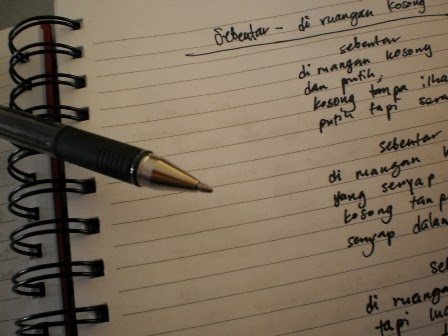 Sebentar - di ruangan kosong
sebentar
di ruangan kosong
dan putih,
kosong tanpa
putih tapi
sebentar
di ruangan
yang senyap
kosong
senyap dalam
di ruangan
tapi